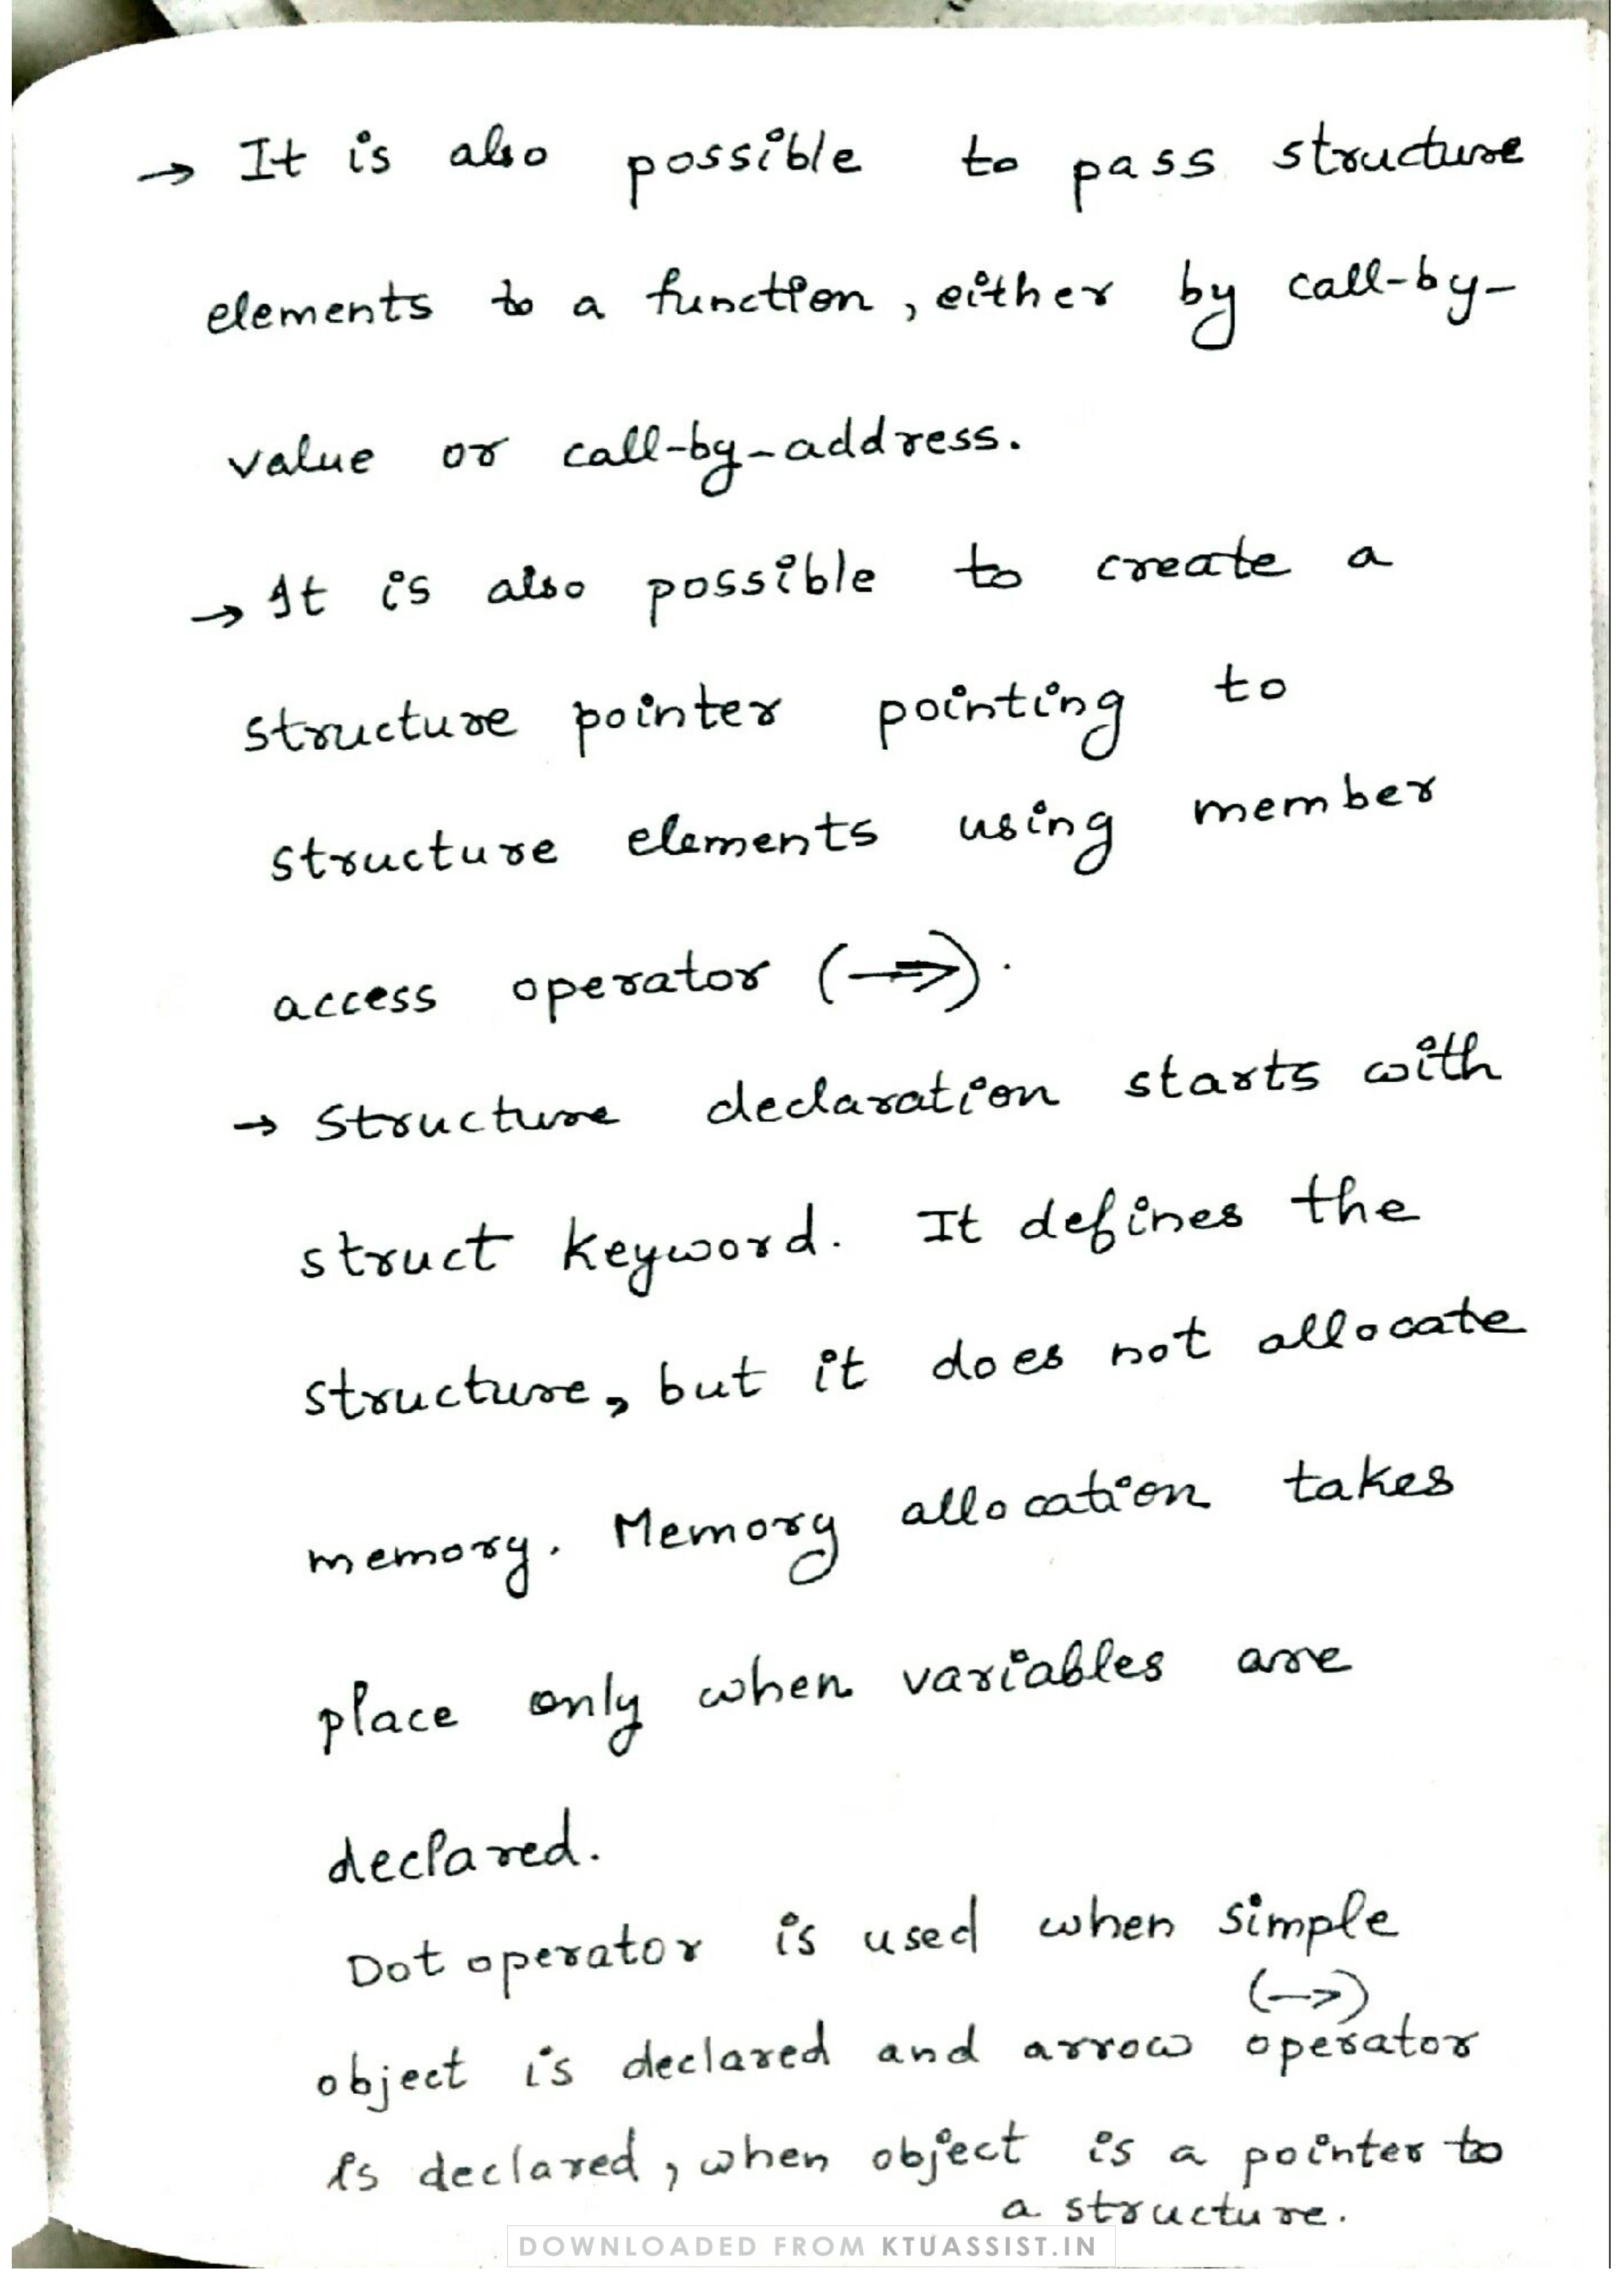 → It is also possible to pass structure
elements to a function, either by call-by-
value or call-by-address.
→ It is also possible to create a
structure pointer pointing to
structure elements using member
access operator (→).
→ Structure declaration starts with
struct keyword. It defines the
structure, but it does not allocate
memory. Memory allocation takes
place only when variables are
declared.
Dot operator is used when simple
(->)
object is declared and arrow operator
is declared, when object is a pointer to
a structure.
DOWNLOADED FROM KTUASSIST.IN